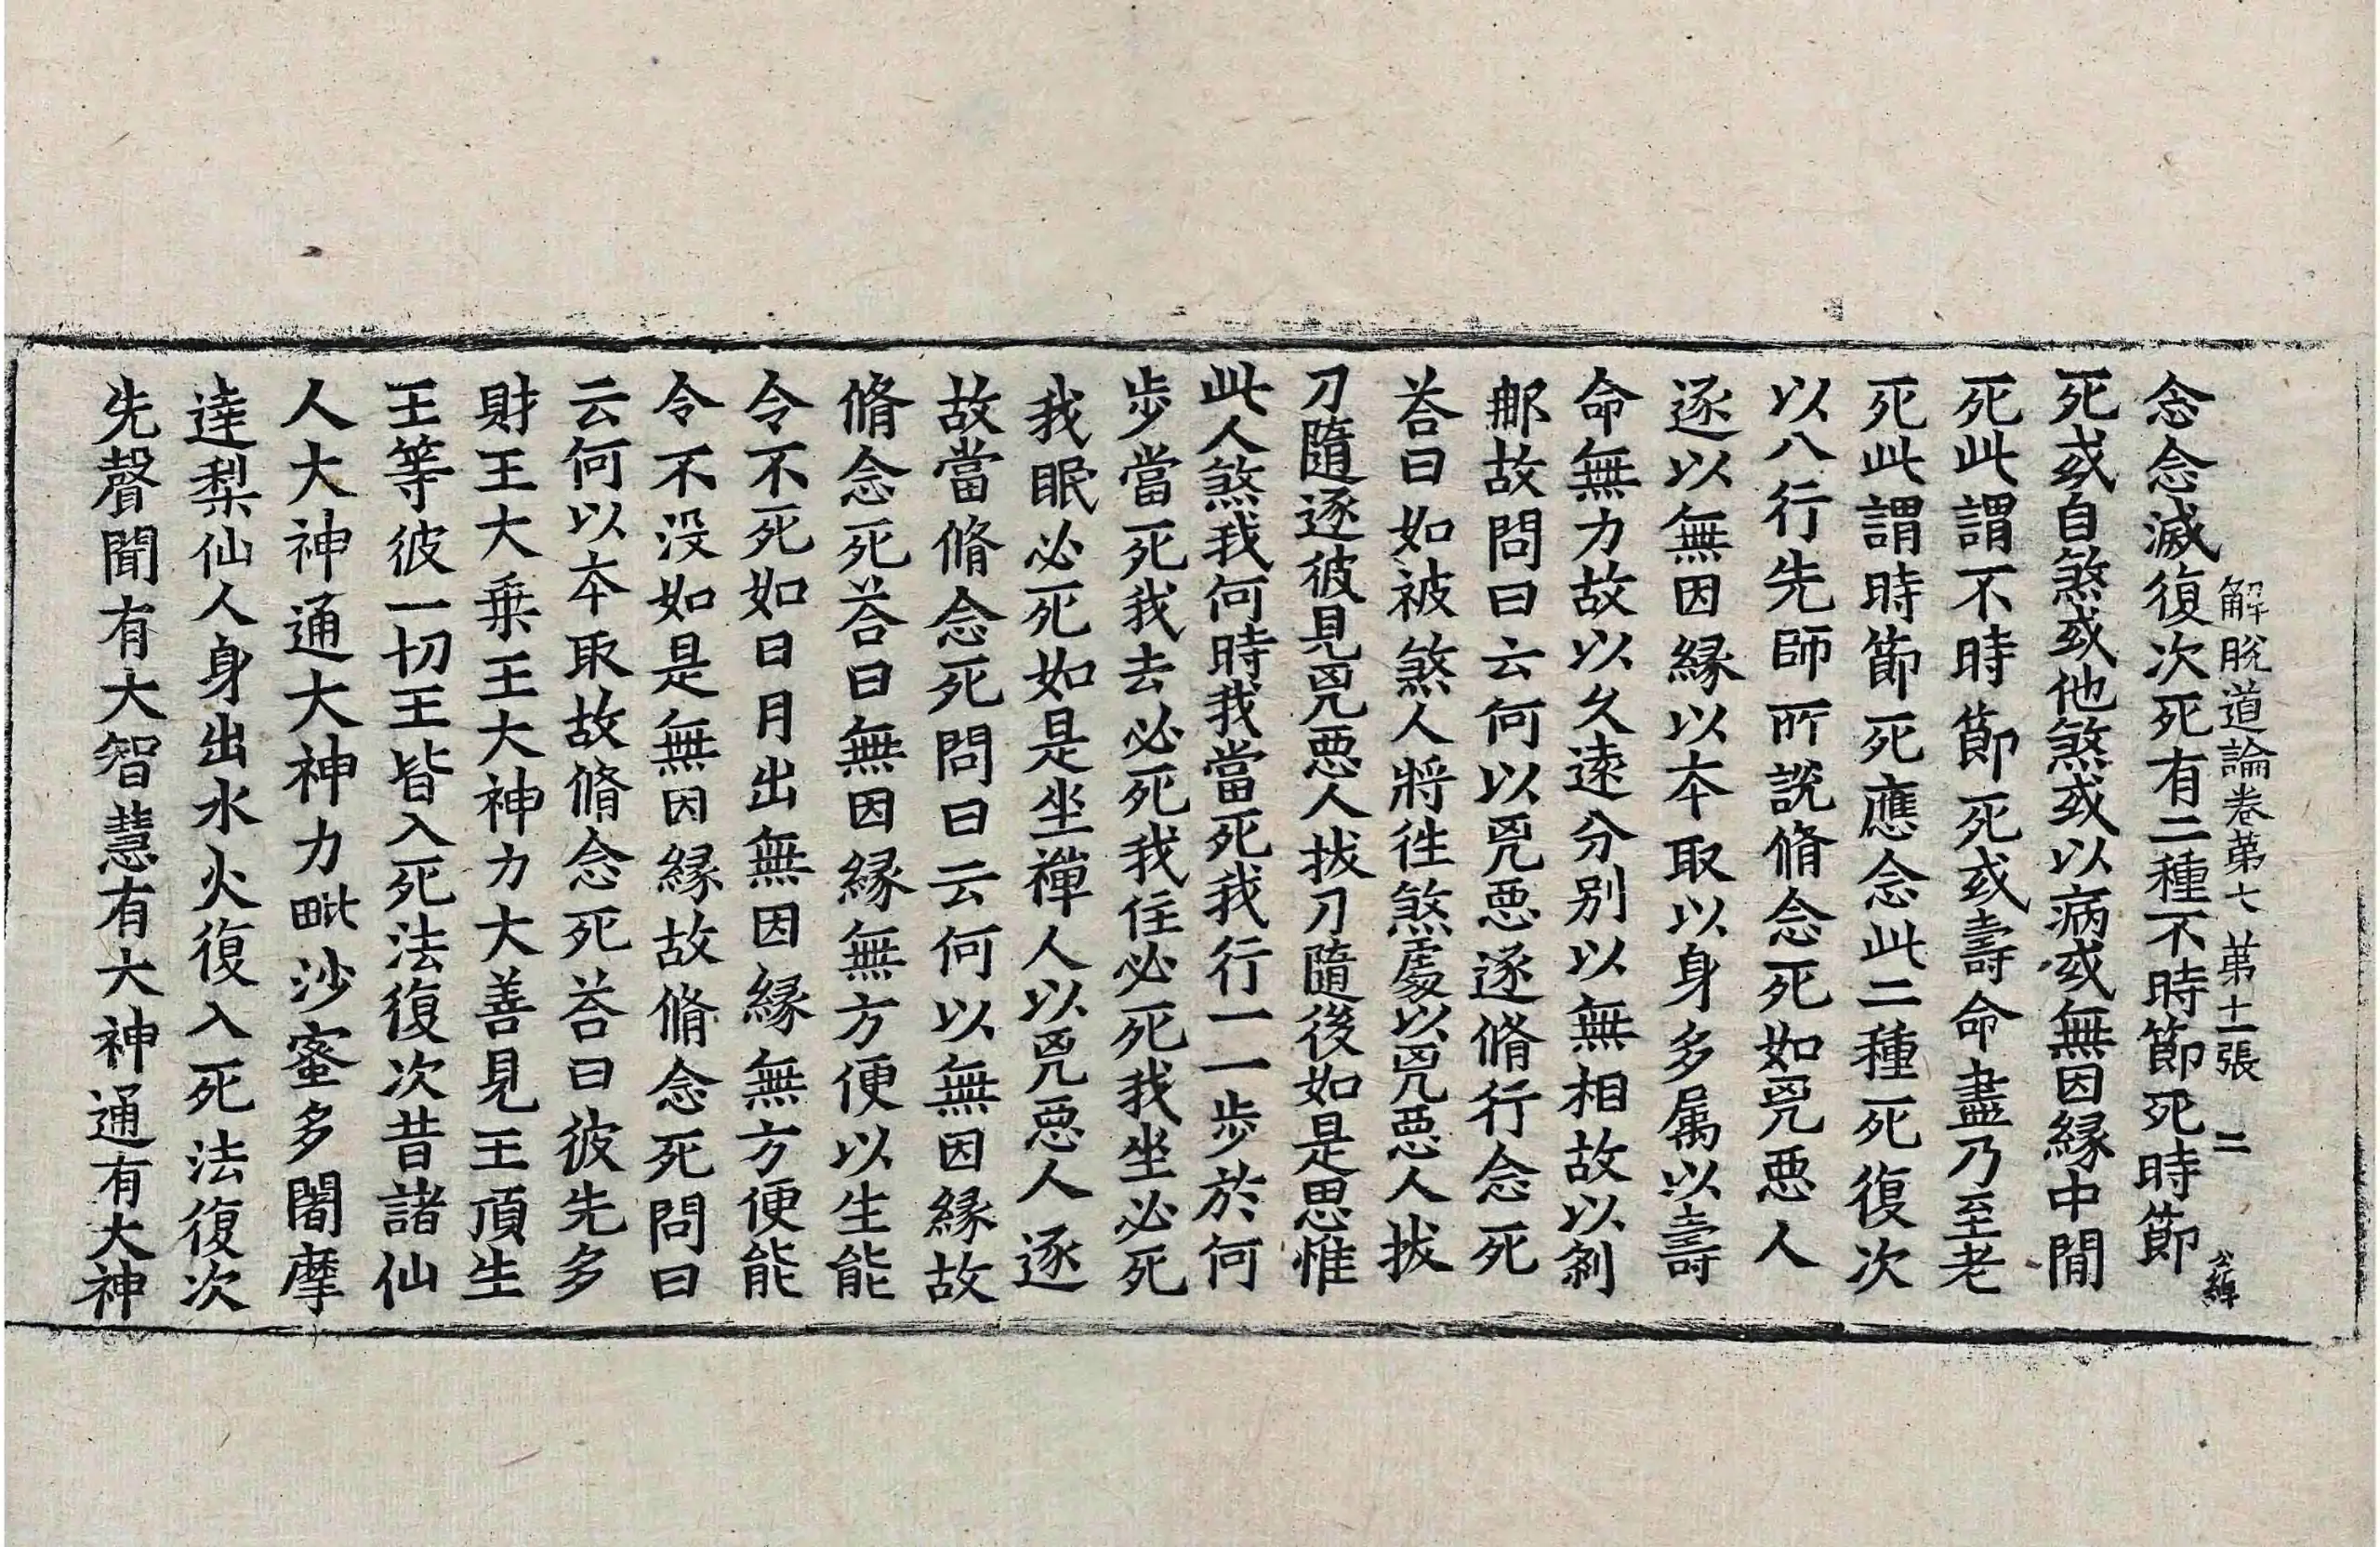 解脫道論卷第七 第十一張 二
念念滅復次死有二種不時節死時節
死或自煞或他煞或以病或無因縁中間
死此謂不時節死或壽命盡乃至老
死此謂時節死應念此二種死復次
以八行先師所說脩念死如兇惡人
逐以無因縁以夲取以身多属以壽
命無力故以久逺分别以無相故以刹
那故問曰云何以兇惡逐脩行念死
荅曰如被煞人將徃煞處以兇惡人拔
刀隨逐彼見兇惡人拔刀隨後如是思惟
此人煞我何時我當死我行一一步於何
步當死我去必死我住必死我坐必死
我眠必死如是坐禪人以兇惡人逐
故當脩念死問曰云何以無因縁故
脩念死荅曰無因縁無方便以生能
令不死如日月出無因縁無方便能
令不没如是無因縁故脩念死問曰
云何以夲取故脩念死荅曰彼先多
財王大乗王大神力大善見王頂生
王等彼一切王皆入死法復次昔諸仙
人大神通大神力毗沙蜜多闍摩
達梨仙人身出水火復入死法復次
先聲聞有大智慧有大神通有大神